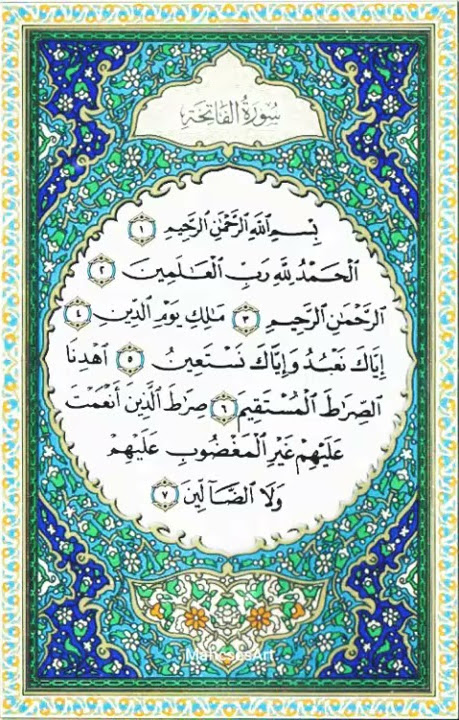 سُورَةُ الفَاتِحَةِ
بِسْمِ اللَّهِ الرَّحْمَٰنِ الرَّحِيمِ ١
الْحَمْدُ لِلَّهِ رَبِّ الْعَالَمِينَ ٢
الرَّحْمَٰنِ الرَّحِيمِ ٣ مَالِكِ يَوْمِ الدِّينِ ٤
إِيَّاكَ نَعْبُدُ وَإِيَّاكَ نَسْتَعِينُ ٥ اهْدِنَا
الصِّرَاطَ الْمُسْتَقِيمَ ٦ صِرَاطَ الَّذِينَ أَنْعَمْتَ
عَلَيْهِمْ غَيْرِ الْمَغْضُوبِ عَلَيْهِمْ
وَلَا الضَّآلِّينَ ٧